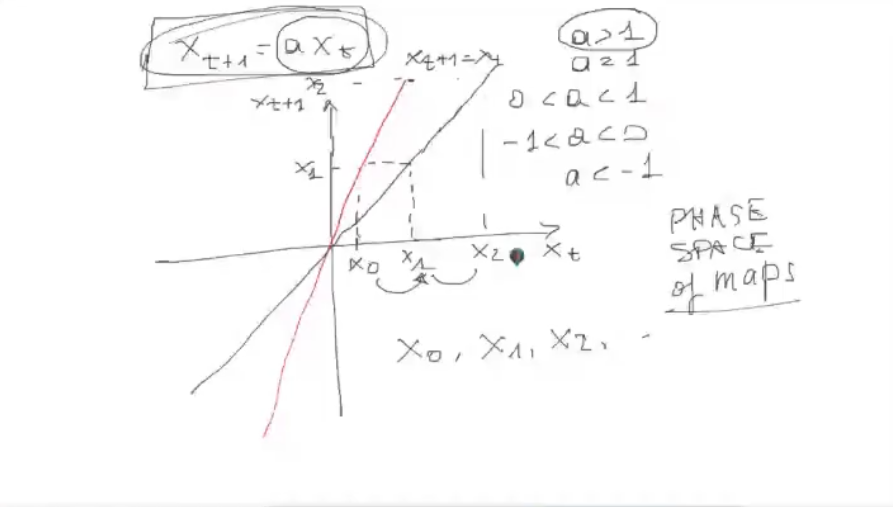 x_{t+1} = a x_t
x_{t+1} = x_t
x_2
x_{t+1}
x_1
x_0 x_1 x_2 x_t
x_0, x_1, x_2,
a > 1
a = 1
0 < a < 1
-1 < a < 0
a < -1
PHASE
SPACE
of maps